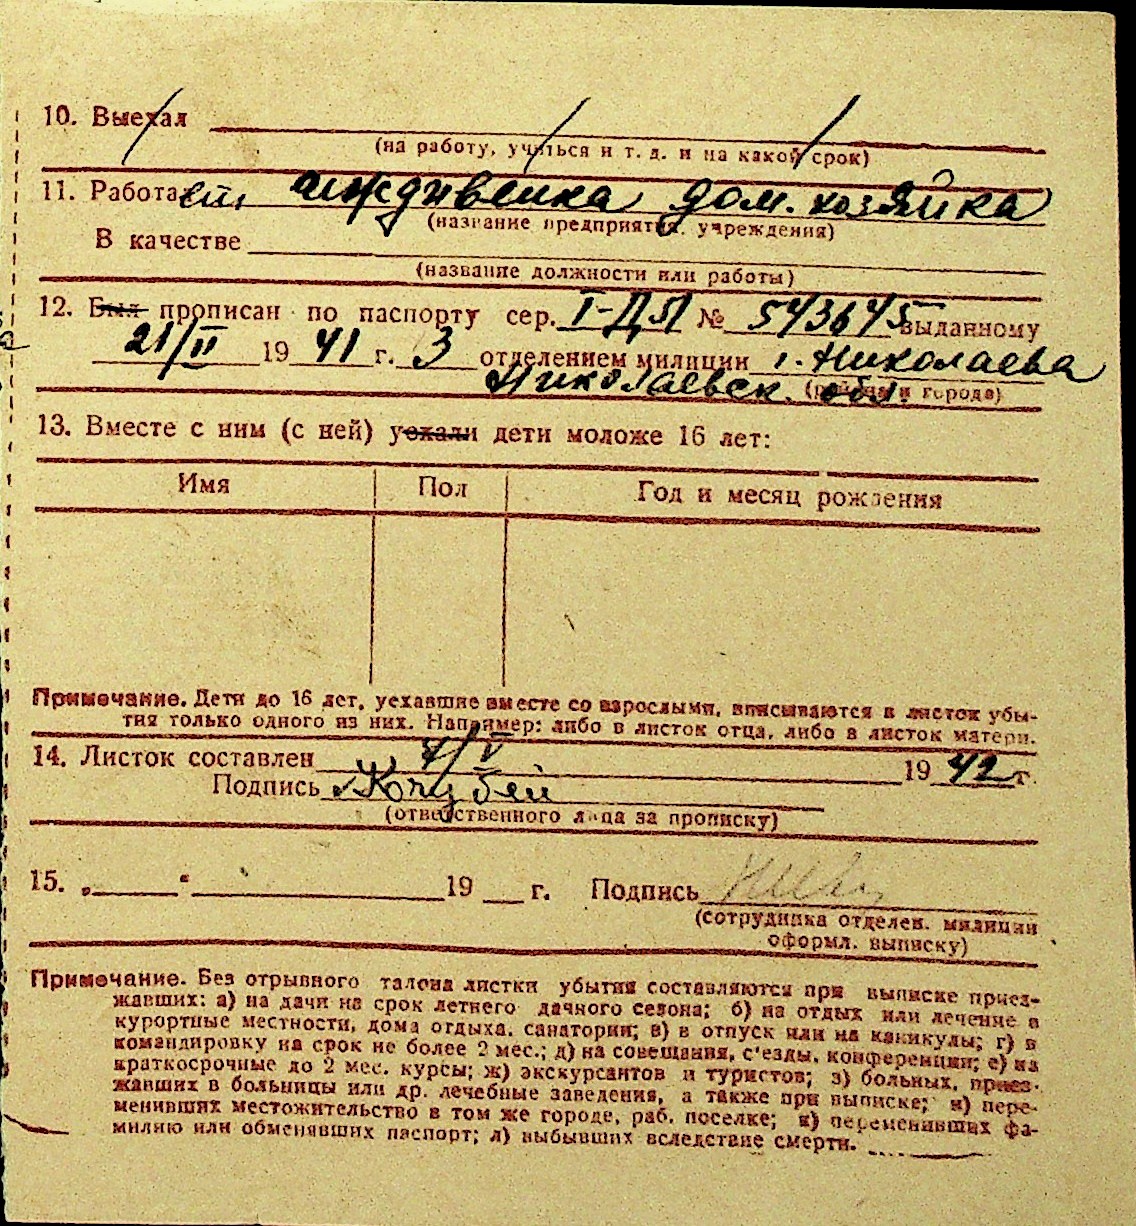 10. Выехал
(на работу, учиться и т. д. и на какой срок)
11. Работает иждивенка дом. хозяйка
(название предприятия, учреждения)
В качестве
(название должности или работы)
12. Был прописан по паспорту сер. I-ДЛ № 543645 выданному
21/II 19 41 г. 3 отделением милиции г. Николаева
Николаевск. обл. (района и города)
13. Вместе с ним (с ней) уехали дети моложе 16 лет:
Имя Пол Год и месяц рождения
Примечание. Дети до 16 лет, уехавшие вместе со взрослыми, вписываются в листок убы-
тия только одного из них. Например: либо в листок отца, либо в листок матери.
14. Листок составлен 7/V 19 42 г.
Подпись Кочубей
(ответственного лица за прописку)
15. „ “ 19 г. Подпись
(сотрудника отделен. милиции
оформл. выписку)
Примечание. Без отрывного талона листки убытия составляются при выписке приез-
жавших: а) на дачи на срок летнего дачного сезона; б) на отдых или лечение в
курортные местности, дома отдыха, санатории; в) в отпуск или на каникулы; г) в
командировку на срок не более 2 мес.; д) на совещания, с'езды, конференции; е) на
краткосрочные до 2 мес. курсы; ж) экскурсантов и туристов; з) больных, приез-
жавших в больницы или др. лечебные заведения, а также при выписке; и) пере-
менивших местожительство в том же городе, раб. поселке; к) переменивших фа-
милию или обменявших паспорт; л) выбывших вследствие смерти.